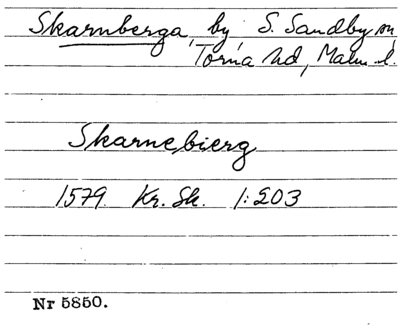 Skarnberga, by, S. Sandby sn,
Torna hd, Malm. l.
Skarnebierg
1579. Kr. Sk. 1:203
Nr 5850.